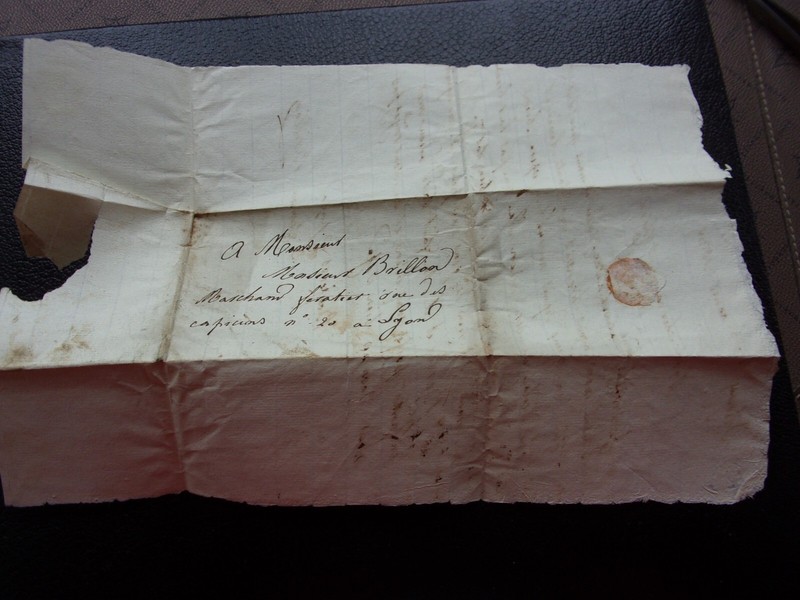 A Monsieur
Monsieur Brillon
Marchand rue des
capicins n° 20 a Lyon